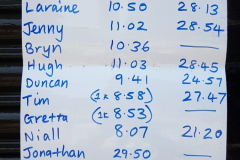 Laraine 10.50 28.13
Jenny 11.02 28.54
Bryn 10.36 —
Hugh 11.03 28.45
Duncan 9.41 24.57
Tim (1k 8.58) 27.47
Gretta (1k 8.53) —
Niall 8.07 21.20
Jonathan 29.50 —